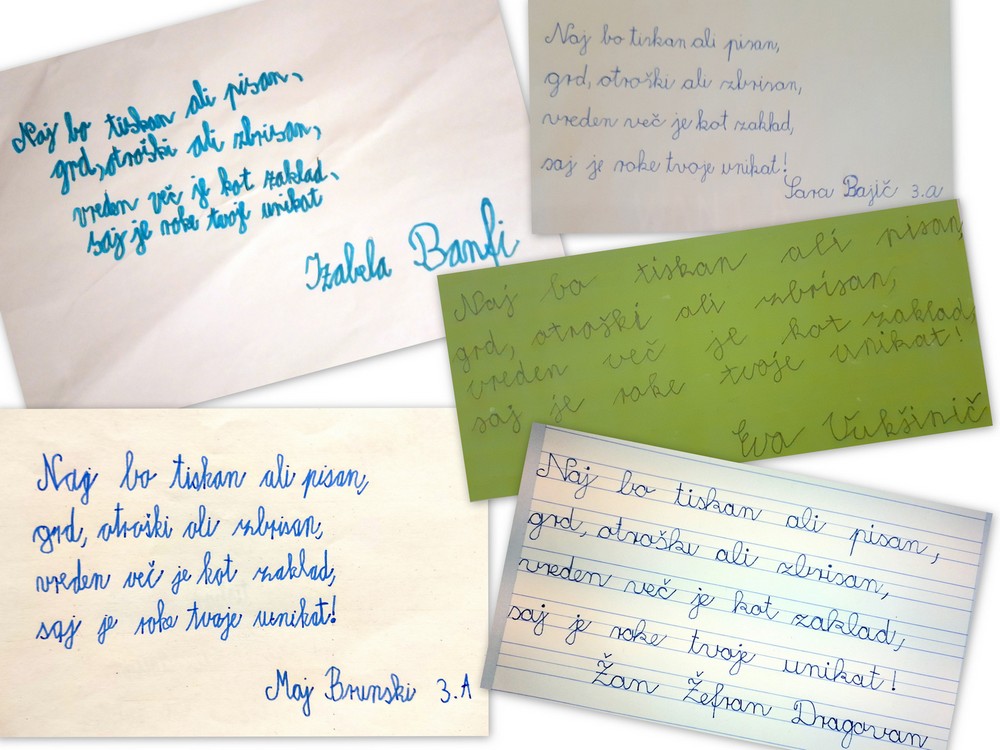 Naj bo tiskan ali pisan,
grd, otroški ali zbrisan,
vreden več je kot zaklad,
saj je roke tvoje unikat
Izabela Banfi
Naj bo tiskan ali pisan,
grd, otroški ali zbrisan,
vreden več je kot zaklad,
saj je roke tvoje unikat!
Sara Bajič 3.a
Naj bo tiskan ali pisan,
grd, otroški ali zbrisan,
vreden več je kot zaklad,
saj je roke tvoje unikat!
Eva Vukšinič
Naj bo tiskan ali pisan,
grd, otroški ali zbrisan,
vreden več je kot zaklad,
saj je roke tvoje unikat!
Maj Brunski 3.A
Naj bo tiskan ali pisan,
grd, otroški ali zbrisan,
vreden več je kot zaklad,
saj je roke tvoje unikat!
Žan Žefran Dragovan